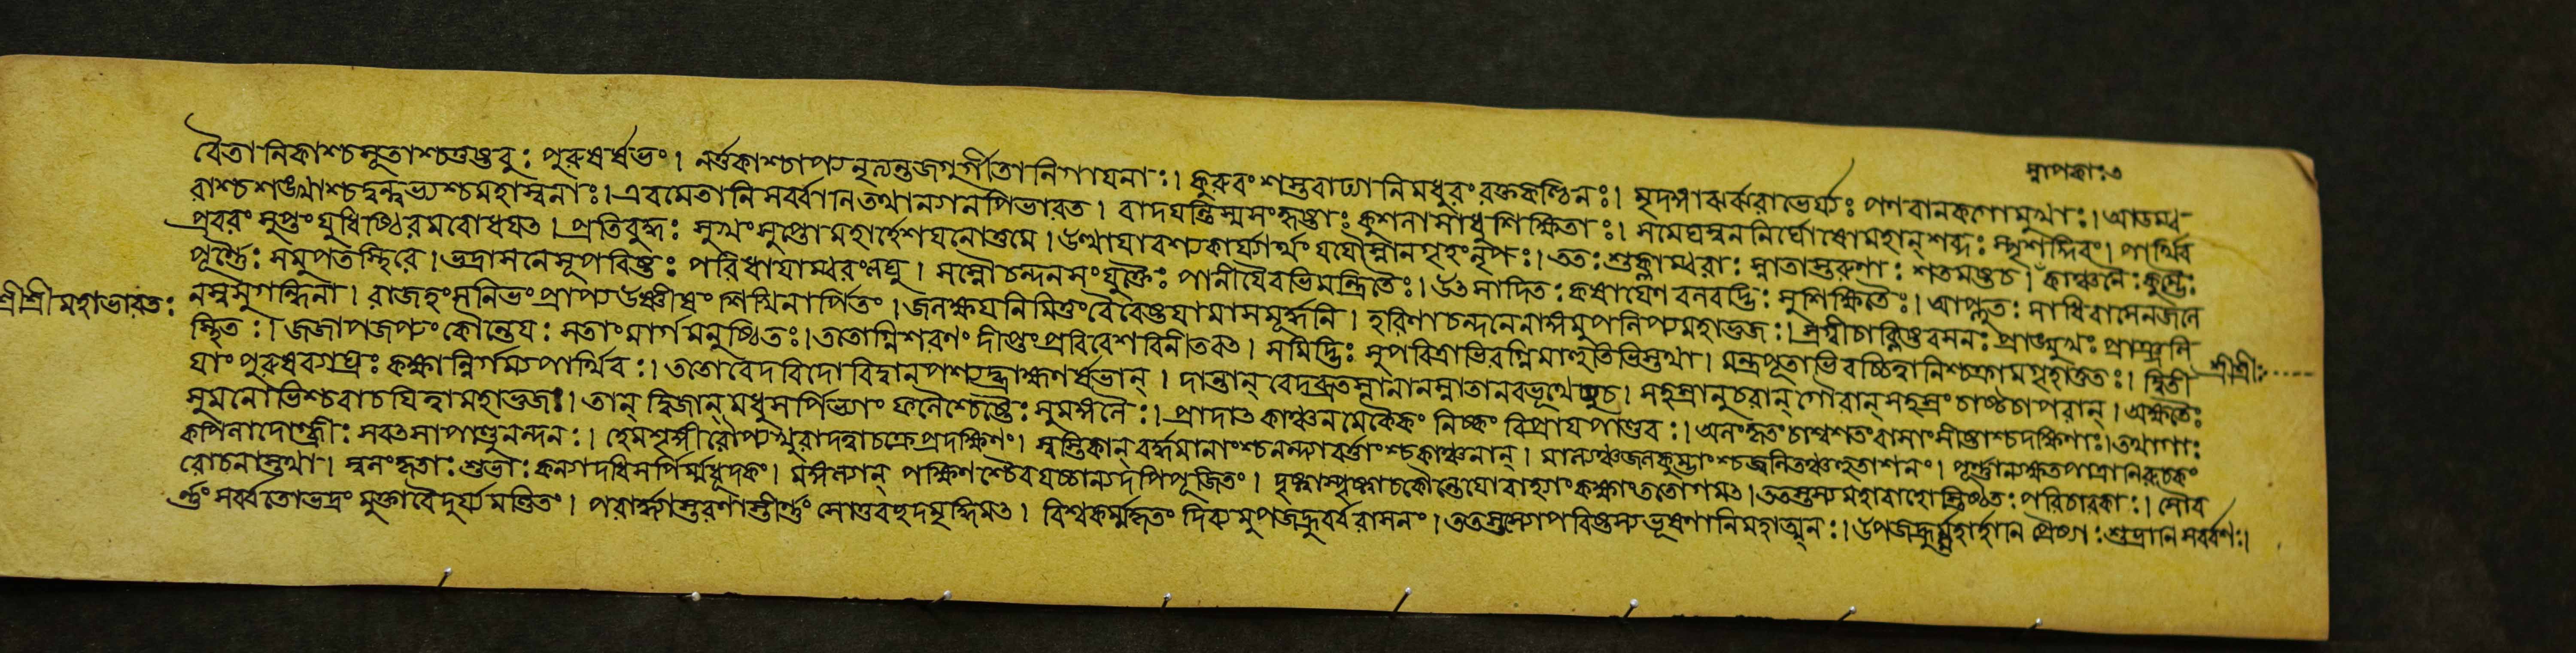 স্নাপকাঃ৩
বৈতানিকাশ্চসূতাশ্চতুষ্টুবুঃ পুরুষর্ষভং। নর্ত্তকাশ্চাপ্যনৃত্যন্তজগুর্গীতানিগাযনাঃ। কুরুবংশস্তবাঢ্যানিমধুরংরক্তকণ্ঠিনঃ। মৃদঙ্গাঝর্ঝরাভের্য্যঃ পণবানকগোমুখাঃ। আডম্ব
রাশ্চশঙ্খাশ্চদুন্দুভ্যশ্চমহাস্বনাঃ। এবমেতানিসর্ব্বানিতথান্যান্যপিভারত। বাদযন্তিস্মসংহৃষ্টাঃ কুশলাসাধুশিক্ষিতাঃ। সমেঘস্বননির্ঘোষোমহান্শব্দঃ স্পৃশন্দিবং। পার্থিব
প্রবরং সুপ্তংযুধিষ্ঠিরমবোধযত্। প্রতিবুদ্ধঃ সুখংসুপ্তোমহার্হেশযনোত্তমে। উত্থাযাবশ্যকার্য্যার্থংযযৌস্নানগৃহংনৃপঃ। ততঃ শুক্লাম্বরাঃ স্নাতাস্তরুণাঃ শতমষ্টচ। কাঞ্চনৈঃ কুম্ভৈঃ
পূর্ণ্ণৈঃ সমুপতস্থিরে। ভদ্রাসনেসূপবিষ্টঃ পরিধাযাম্বরংলঘু। সস্নৌচন্দনসংযুক্তৈঃ পানীযৈরভিমন্ত্রিতৈঃ। উত্সাদিতঃ কষাযেণ বলবদ্ভিঃ সুশিক্ষিতৈঃ। আপ্লুতঃ সাধিবাসেনজলে
শ্রীশ্রীমহাভারতঃ নসসুগন্ধিনা। রাজহংসনিভংপ্রাপ্যউষ্ণীষং শিথিলার্পিতং। জলক্ষযনিমিত্তংবৈবেষ্টযামাসমূর্দ্ধনি। হরিণাচন্দনেনাঙ্গমুপলিপ্যমহাভুজঃ। স্রগ্বীচাক্লিষ্টবসনঃ প্রাঙ্মুখঃ প্রাঞ্জলি
স্থিতঃ। জজাপজপ্যংকৌন্তেযঃ সতাংমার্গমনুষ্ঠিতঃ। ততোগ্নিশরণং দীপ্তংপ্রবিবেশবিনীতবত্। সমিদ্ভিঃ সুপবিত্রাভিরগ্নিমাহুতিভিস্তথা। মন্ত্রপূতাভিরর্চ্চিত্বানিশ্চক্রামগৃহাত্ততঃ। দ্বিতী শ্রীশ্রীঃ.....
যাং পুরুষব্যাঘ্রঃ কক্ষান্নির্গম্যপার্থিবঃ। ততোবেদবিদোবিদ্বানপশ্যদ্ব্রাহ্মণর্ষভান্। দান্তান্ বেদব্রতস্নানানস্নাতানবভৃথেষুচ। সহস্রানুচরান্গৌরান্সহস্রং চাষ্টচাপরান্। অক্ষতৈঃ
সুমনোভিশ্চবাচযিত্বামহাভুজঃ। তান্ দ্বিজান্ মধুসর্পির্ভ্যাং ফলৈশ্চেষ্টৈঃ সুমঙ্গলৈঃ। প্রাদাত্ কাঞ্চনমেকৈকং নিষ্কং বিপ্রাযপাণ্ডবঃ। অলংকৃতংচাশ্বশতংবাসাংসীষ্টাশ্চদক্ষিণাঃ। তথাগাঃ
কপিলাদোগ্ধ্রীঃ সবত্সাপাণ্ডুনন্দনঃ। হেমশৃঙ্গীরৌপ্যখুরাদত্বাচক্রেপ্রদক্ষিণং। স্বস্তিকান্ বর্দ্ধমানাংশ্চনন্দ্যাবর্ত্তাংশ্চকাঞ্চনান্। মাল্যঞ্চজলকুম্ভাংশ্চজ্বলিতঞ্চহুতাশনং। পূর্ণ্ণান্যক্ষতপাত্রানিরুচকং
রোচনাস্তথা। স্বলংকৃতাঃ শুভাঃ কন্যাদধিসর্পির্ম্মধূদকং। মঙ্গল্যান্ পক্ষিণশ্চৈবযচ্চান্যদপিপূজিতং। দৃষ্ট্বাস্পৃষ্ট্বাচকৌন্তেযোবাহ্যাংকক্ষাংততোগমত্। ততস্তস্যমহাবাহোস্তিষ্ঠতঃ পরিচারকাঃ। সৌব
র্ণ্ণং সর্ব্বতোভদ্রং মুক্তাবৈদুর্য্যমণ্ডিতং। পরার্দ্ধ্যাস্তরণাস্তীর্ণ্ণং সোত্তরচ্ছদমৃদ্ধিমত্। বিশ্বকর্ম্মকৃতং দিব্যমুপজহ্রুর্বরাসনং। ততস্তস্যোপবিষ্টস্যভূষণানিমহাত্মনঃ। উপজহ্রুর্ম্মহার্হানি প্রেষ্যাঃ শুভ্রানি সর্ব্বশঃ।